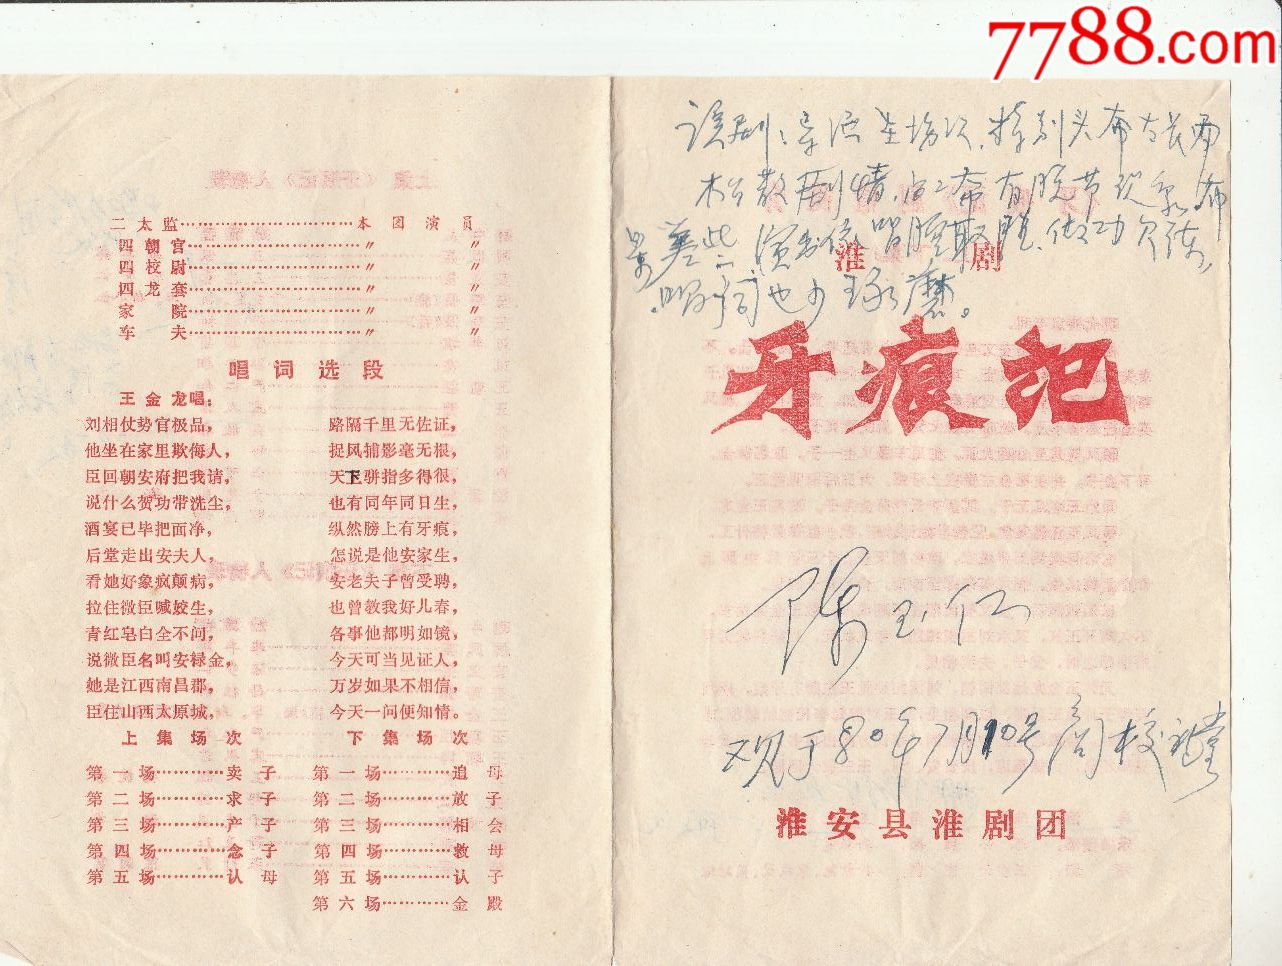 7788.com
二太监……………………本团演员
四朝官……………………〃 〃
四校尉……………………〃 〃
四龙套……………………〃 〃
家 院……………………〃 〃
车 夫……………………〃 〃
唱词选段
王金龙唱：
刘相仗势官极品，
他坐在家里欺侮人，
臣回朝安府把我请，
说什么贺功带洗尘，
酒宴已毕把面净，
后堂走出安夫人，
看她好象疯颠病，
拉住微臣喊姣生，
青红皂白全不问，
说微臣名叫安禄金，
她是江西南昌郡，
臣住山西太原城，
路隔千里无佐证，
捉风捕影毫无根，
天下骈指多得很，
也有同年同日生，
纵然膀上有牙痕，
怎说是他安家生，
安老夫子曾受聘，
也曾教我好儿春，
各事他都明如镜，
今天可当见证人，
万岁如果不相信，
今天一问便知情。
上集场次
第一场…………卖子
第二场…………求子
第三场…………产子
第四场…………念子
第五场…………认母
下集场次
第一场…………追母
第二场…………放子
第三场…………相会
第四场…………救母
第五场…………认子
第六场…………金殿
该剧：导演 场次，特别头布 长而
松散，剧情 有脱节现象，布
景差些，演 唱腔 做功欠
唱词也少琢磨。
淮剧
牙痕记
陈玉仁
观于80年7月10号 校礼堂
淮安县淮剧团